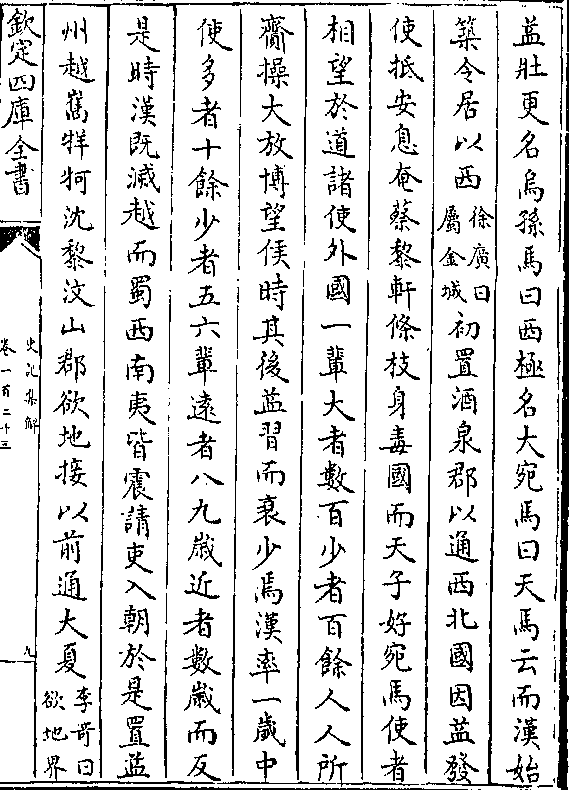 益壯更名烏孫馬曰西極名大宛馬曰天馬云而漢始
築令居以西徐廣曰屬金城初置酒泉郡以通西北國因益發
使抵安息奄蔡黎軒條枝身毒國而天子好宛馬使者
相望於道諸使外國一輩大者數百少者百餘人人所
齎操大放博望侯時其後益習而衰少焉漢率一歲中
使多者十餘少者五六輩遠者八九歲近者數歲而反
是時漢既滅越而蜀西南夷皆震請吏入朝於是置益
州越嶲牂牁沈黎汶山郡欲地接以前通大夏李竒曰欲地界
欽定四庫全書
史記集解
卷一百二十三
九